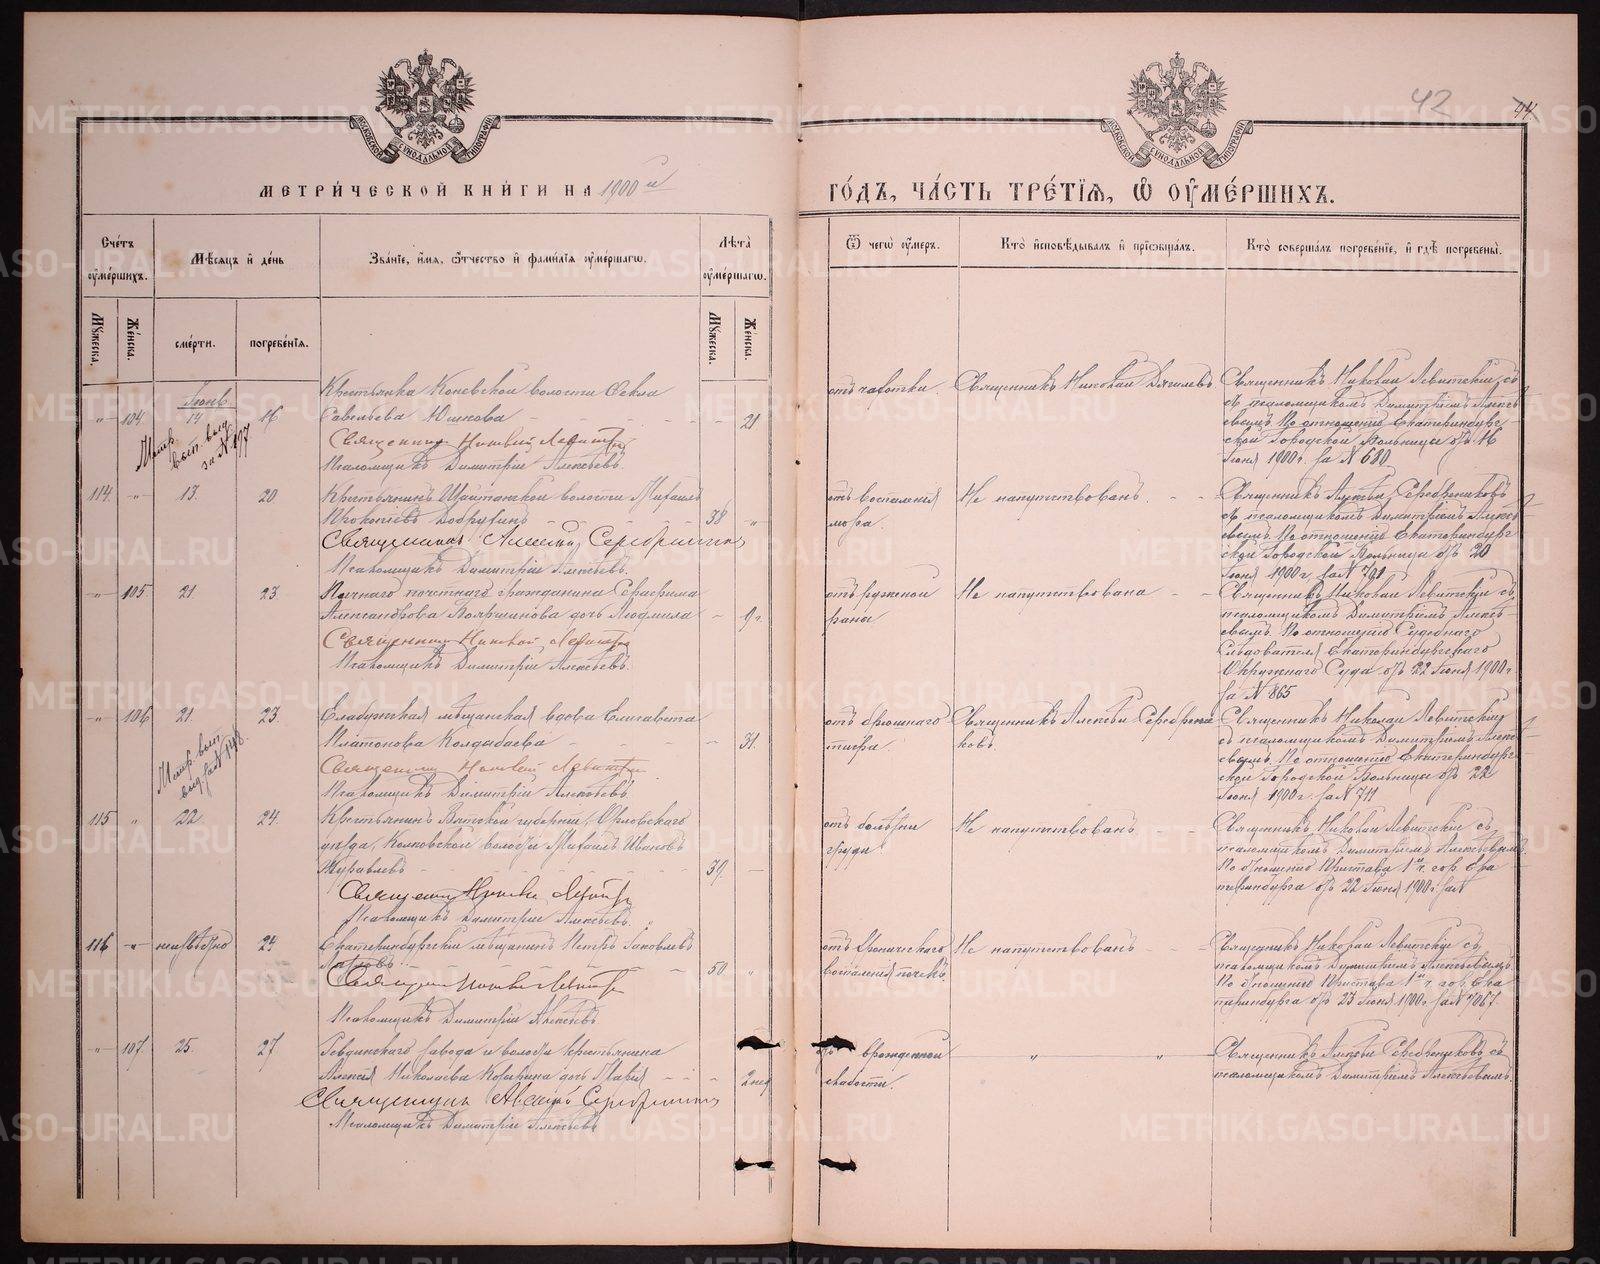 42
МЕТРИ́ЧЕСКОЙ КНИ́ГИ НА 1900 й
ГО́ДЪ, ЧА́СТЬ ТРЕ́ТЇѦ, Ѡ ОУМЕ́РШИХЪ.
Счетъ оумершихъ.
Мѣсяцъ и день
Званіе, имя, отчество и фамилія оумершагѡ.
Лѣта оумершагѡ.
Ѿ чегѡ оумеръ.
Кто исповѣдывалъ и прїобщалъ.
Кто совершалъ погребеніе, и гдѣ погребены.
Мужеска.
Женска.
смерти.
погребенія.
Мужеска.
Женска.
Іюнь
104 14 16
Крестьянка Коневской волости Фекла
Савельева Юшкова 21
Священникъ Николай Левитскій
Псаломщикъ Димитрій Алексѣевъ.
отъ чахотки
Священникъ Николай
Священникъ Николай Левитскій съ
псаломщикомъ Димитріемъ Алексѣ-
евымъ. По отношенію Екатеринбург-
ской Городской Больницы отъ 16
Іюня 1900 г. за N 680
114 13. 20
Крестьянинъ Шайтанской волости Михаилъ
Прокопіевъ 38
Священникъ Алексій Серебренниковъ
Псаломщикъ Димитрій Алексѣевъ.
отъ воспаленія
мозга.
Не напутствованъ
Священникъ Алексій Серебренниковъ
съ псаломщикомъ Димитріемъ Алексѣ-
евымъ. По отношенію Екатеринбург-
ской Городской Больницы отъ 20
Іюня 1900 г. за N 701
105 21 23
почетнаго гражданина Серафима
Александрова дочь Людмила 9 г.
Священникъ Николай Левитскій
Псаломщикъ Димитрій Алексѣевъ.
отъ
раны
Не напутствована
Священникъ Николай Левитскій съ
псаломщикомъ Димитріемъ Алексѣ-
евымъ. По отношенію Судебнаго
Слѣдователя Екатеринбургскаго
Окружнаго Суда отъ 22 Іюня 1900 г.
за N 865
106 21. 23.
Елабужская мѣщанская вдова Елизавета
Платонова Колдыбаева 31.
Священникъ Николай Левитскій
Псаломщикъ Димитрій Алексѣевъ.
отъ брюшного
тифа.
Священникъ Алексій Серебренни-
ковъ.
Священникъ Николай Левитскій
съ псаломщикомъ Димитріемъ Алексѣ-
евымъ. По отношенію Екатеринбург-
ской Городской Больницы отъ 22
Іюня 1900 г. за N 711
115 22. 24.
Крестьянинъ Вятской губерніи, Орловскаго
уѣзда, волости Михаилъ Ивановъ
Журавлевъ 39.
Священникъ Николай Левитскій
Псаломщикъ Димитрій Алексѣевъ.
отъ болѣзни
груди
Не напутствованъ
Священникъ Николай Левитскій съ
псаломщикомъ Димитріемъ Алексѣевымъ
По отношенію Пристава 1 ч. гор. Ека-
теринбурга отъ 22 Іюня 1900 г. за N
116 неизвѣстно 24
Екатеринбургскій мѣщанинъ Петръ Іаковлевъ
50.
Священникъ Николай Левитскій
Псаломщикъ Димитрій Алексѣевъ
отъ хроническаго
воспаленія почекъ.
Не напутствованъ
Священникъ Николай Левитскій съ
псаломщикомъ Димитріемъ Алексѣевымъ
По отношенію Пристава 1 ч. гор. Ека-
теринбурга отъ 23 Іюня 1900 г. за N 7067
107 25. 27
Ревдинскаго завода и волости крестьянина
Алексія Николаева дочь Марія 2 нед
Священникъ Алексій Серебренниковъ
Псаломщикъ Димитрій Алексѣевъ
отъ врожденной
слабости.
Священникъ Алексій Серебренниковъ съ
псаломщикомъ Димитріемъ Алексѣевымъ.
METRIKI.GASO-URAL.RU